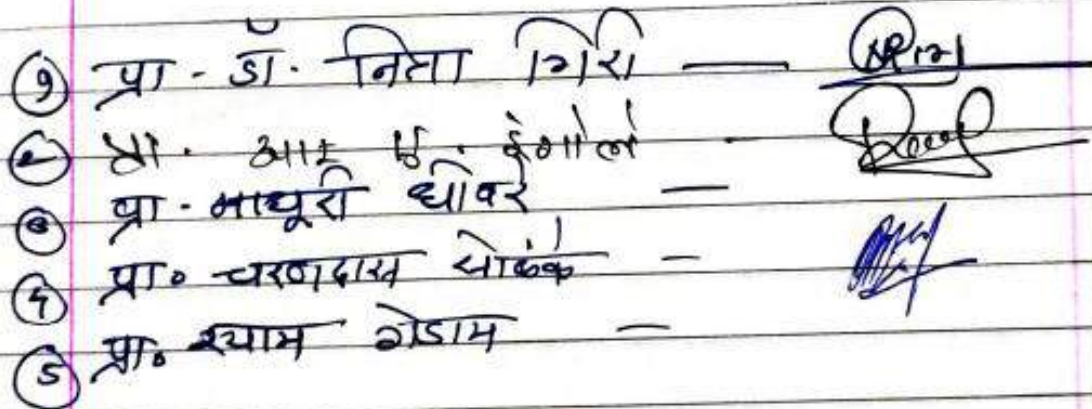 १ प्रा - डॉ. निता गिरी —
२ प्रा. आर ए. इंगोले -
३ प्रा - माधूरी धीवरे —
४ प्रा० चरणदास सोळंके -
५ प्रा. श्याम गेडाम —